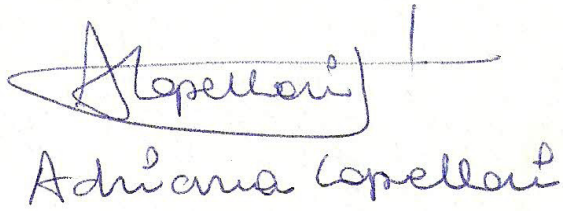 ACapellari
Adriana Capellari